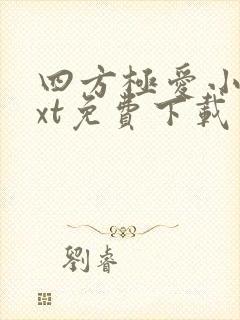 四方極愛小
xt免費下載
劉睿